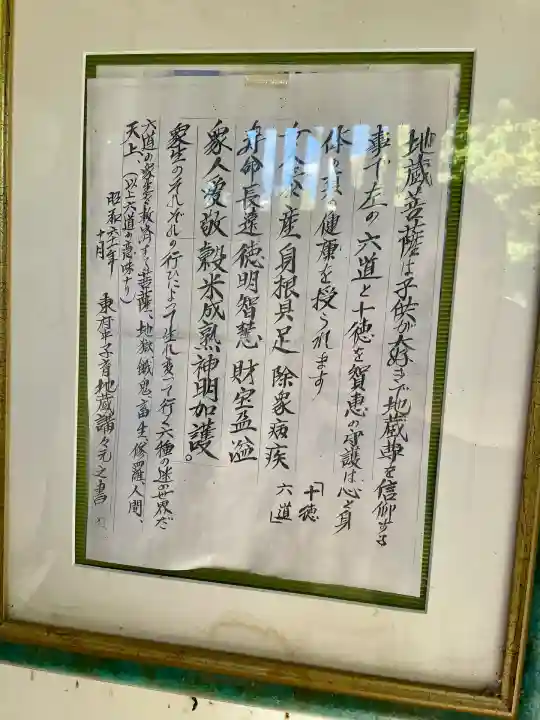 地蔵菩薩は子供が大好きで地蔵尊を信仰する
事で左の六道と十徳を賢恵の守護は、心と身
体の健康を授うれます
「十徳
六道」
産身根具足 除衆病疾
寿命長遠 徳明智慧 財宝盈溢
衆人愛敬 穀米成熟 神明加護。
衆生のそれぞれの行ひによって生れ変って行く六種の迷の世界だ
六道の衆生を救済する菩薩、地獄、餓鬼、畜生、修羅、人間、
天上、(以上六道の意味なり)
昭和六十一年
十月
東府中子育地蔵講
元之書